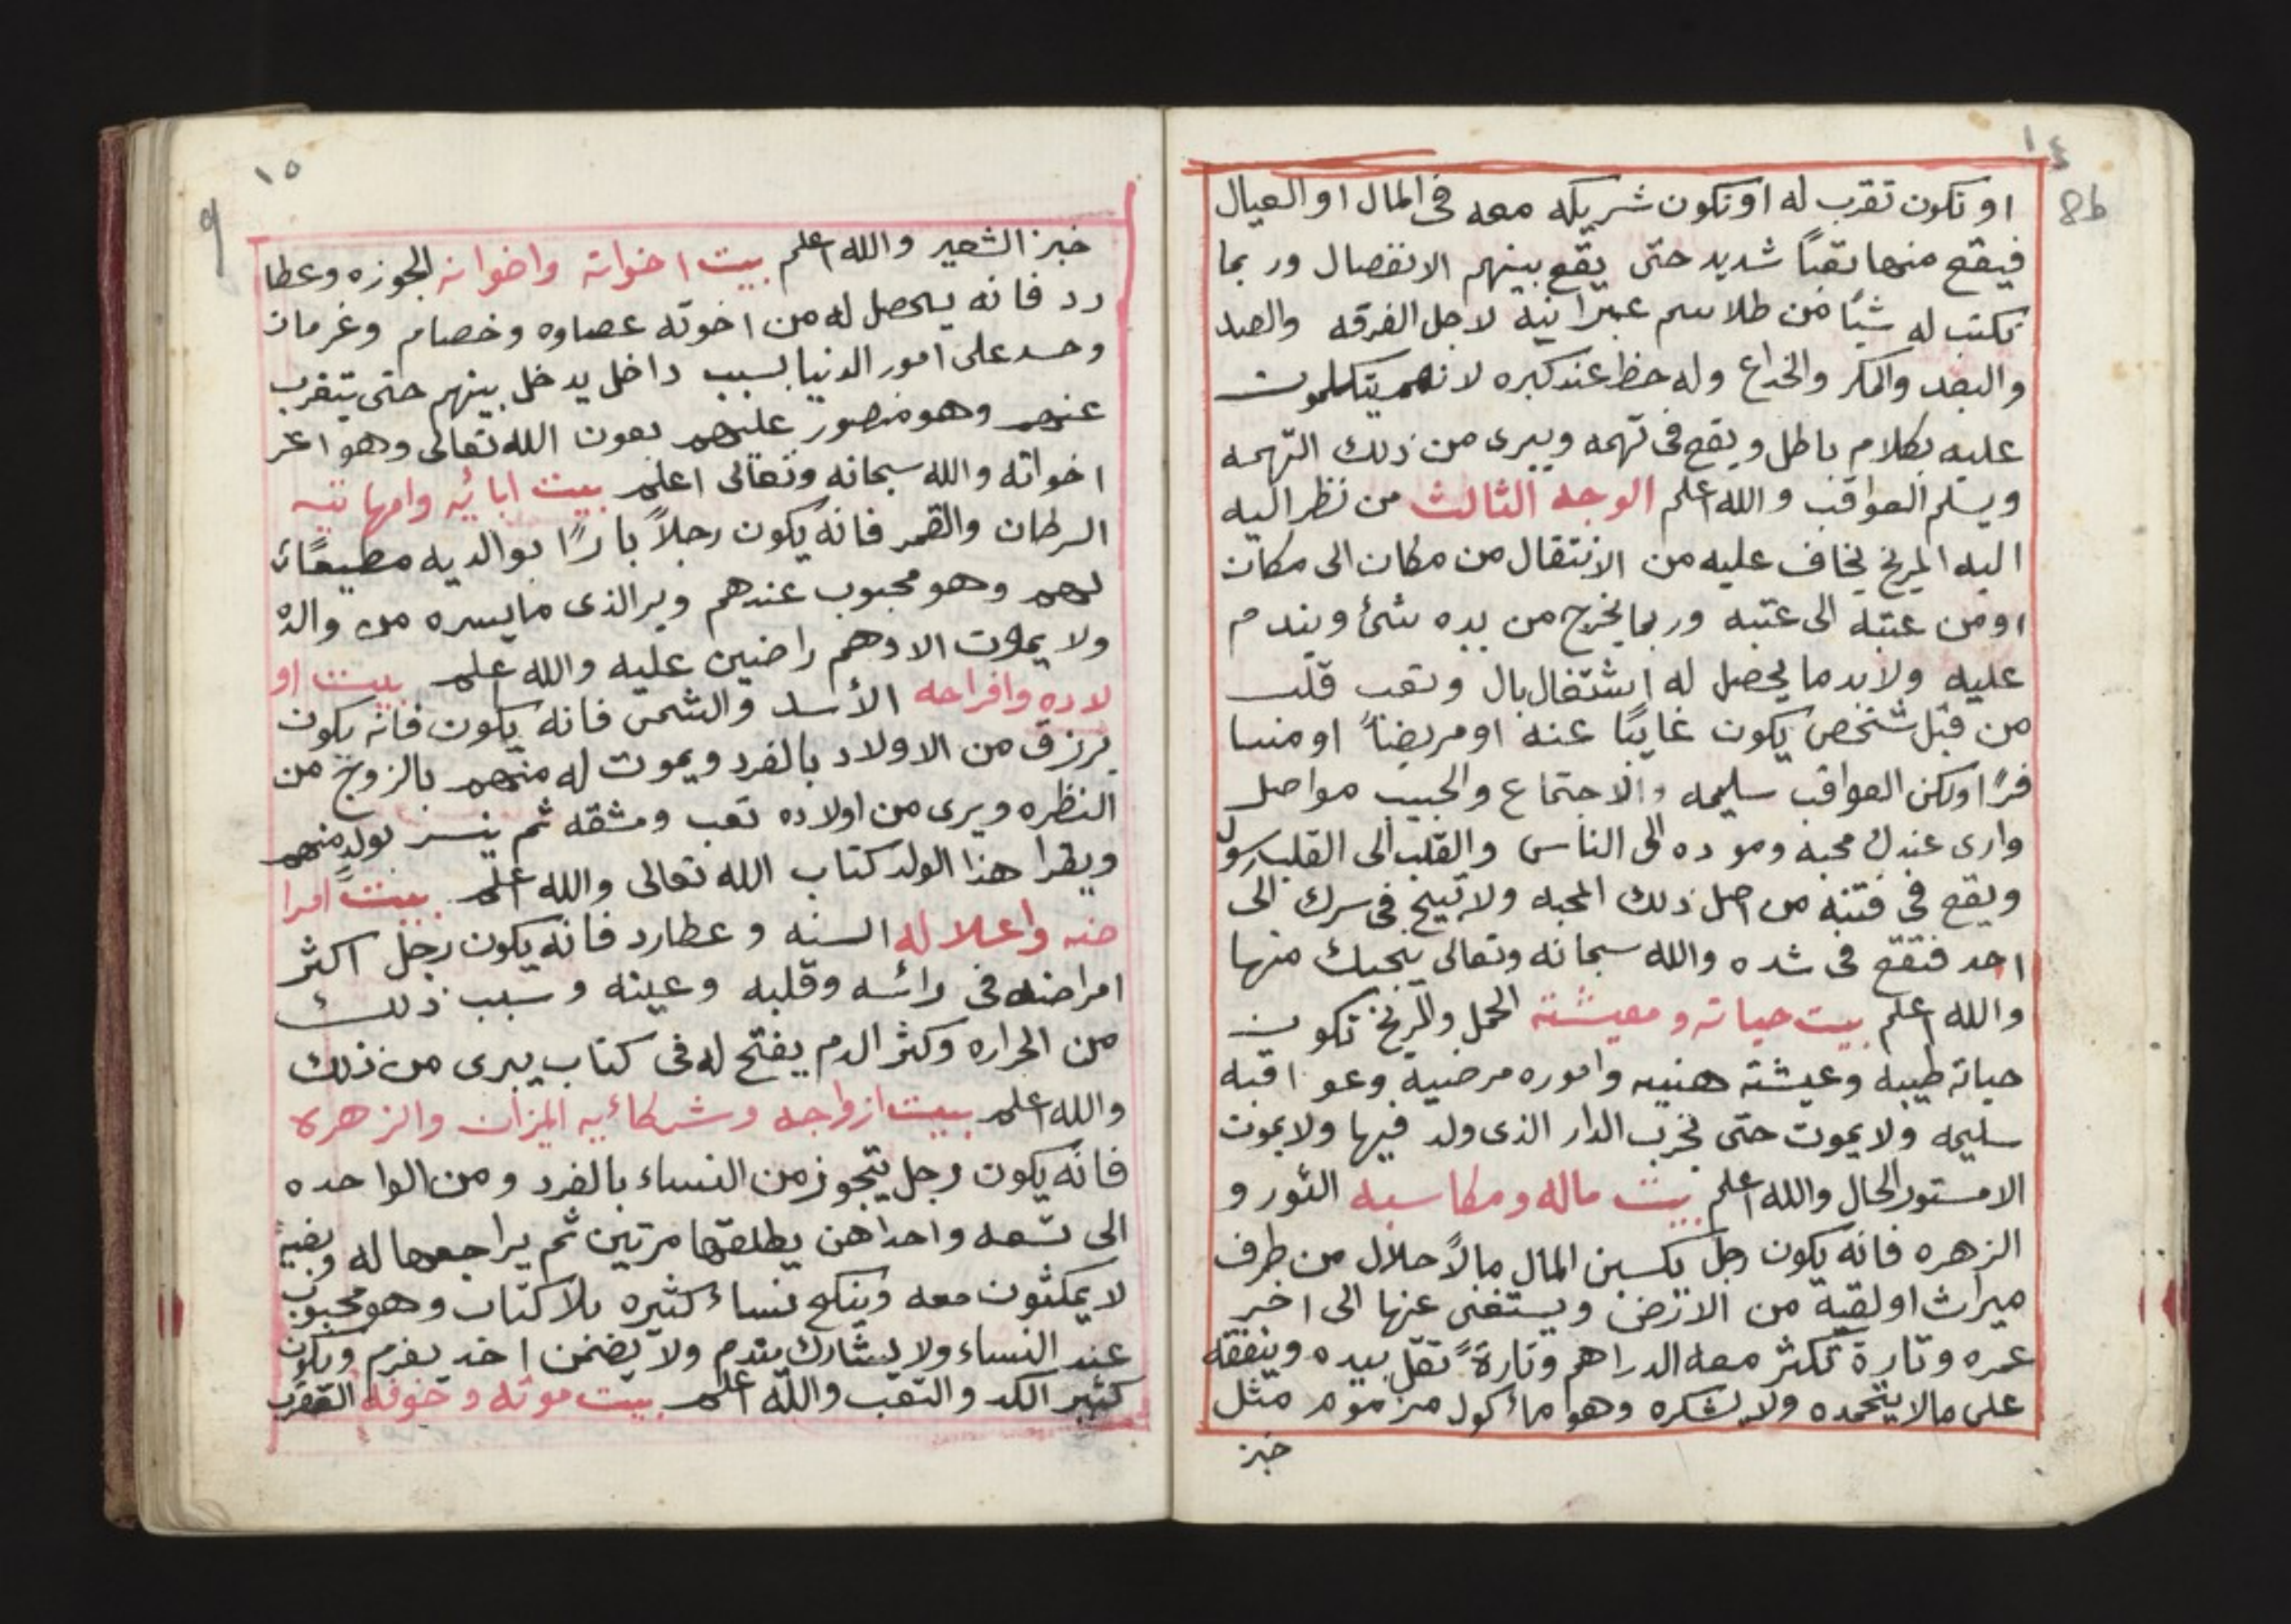 ١٤
8b
او تكون تقرب له او تكون شريكه معه فى المال او العيال
فيقع منها تعباً شديد حتى يقع بينهم الانفصال وربما
تكتب له شيًا من طلاسم عبرانيه لاجل الفرقه والصد
والبعد والمكر والخداع وله حظ عند كبره لانهم يتكلمون
عليه بكلام باطل ويقع فى تهمه ويبرى من ذلك التهمه
ويسلم العواقب والله اعلم الوجه الثالث من نظر اليه
اليه المريخ يخاف عليه من الانتقال من مكان الى مكان
اومن عتبه الى عتبه وربما يخرج من يده شئ ويندم
عليه ولابد ما يحصل له اشتغال بال وتعب قلب
من قبل شخص يكون غايبًا عنه او مريضاً او مسا
فرًا ولكن العواقب سليمه والاجتماع والحبيب مواصل
وارى عندك محبه وموده الى الناس والقلب الى القلب رسول
ويقع فى فتنه من اصل ذلك المحبه ولا تبيح فى سرك الى
احد فتقع فى شده والله سبحانه وتعالى ينجيك منها
والله اعلم بيت حياته ومعيشته الحمل والمريخ تكون
حياته طيبه وعيشته هنيه واموره مرضيه وعواقبه
سليمه ولا يموت حتى تخرب الدار الذى ولد فيها ولا يموت
الا مستور الحال والله اعلم بيت ماله ومكاسبه الثور و
الزهره فانه يكون رجل يكسبن المال مالاً حلال من طرف
ميراث او لقية من الارض ويستغنى عنها الى اخر
عمره وتارة تكثر معه الدراهم وتارةً تقل بيده وينفقه
على مالا يتحمده ولا يشكره وهو مأكول مزموم مثل
خبز
١٥
9
خبز الشعير والله اعلم بيت اخواته واخوانه الجوزه وعطا
رد فانه يحصل له من اخوته عصاوه وخصام وغرمان
وحسد على امور الدنيا بسبب داخل يدخل بينهم حتى يتغرب
عنهم وهو منصور عليهم بعون الله تعالى وهو اعز
اخواته والله سبحانه وتعالى اعلم بيت ابائيه وامهاتيه
السرطان والقمر فانه يكون رجلاً بارًا بوالديه مطيعًا
لهم وهو محبوب عندهم وير الذى ما يسره من والده
ولا يموت الا وهم راضين عليه والله اعلم بيت او
لاده وافراحه الأسد والشمس فانه يكون فانه يكون
يرزق من الاولاد بالفرد ويموت له منهم بالزوج من
النظره ويرى من اولاده تعب ومشقه ثم ينسر بولدٍ منهم
ويقرا هذا الولد كتاب الله تعالى والله اعلم بيت امرا
ضه واعلاله السنه وعطارد فانه يكون رجل اكثر
امراضه فى رائسه وقلبه وعينه وسبب ذلك
من الحراره وكثر الدم يفتح له فى كتاب يبرى من ذلك
والله اعلم بيت ازواجه وشركائيه الميزان والزهره
فانه يكون رجل يتجوز من النساء بالفرد ومن الواحده
الى تسعه واحداهن يطلقها مرتين ثم يراجعها له وبقيةً
لا يمكثون معه وينكح نساء كثيره بلا كتاب وهو محبوب
عند النساء ولا يشارك يندم ولا يضمن احد يغرم ويكون
كثير الكد والتعب والله اعلم بيت موته وخوفه العقرب